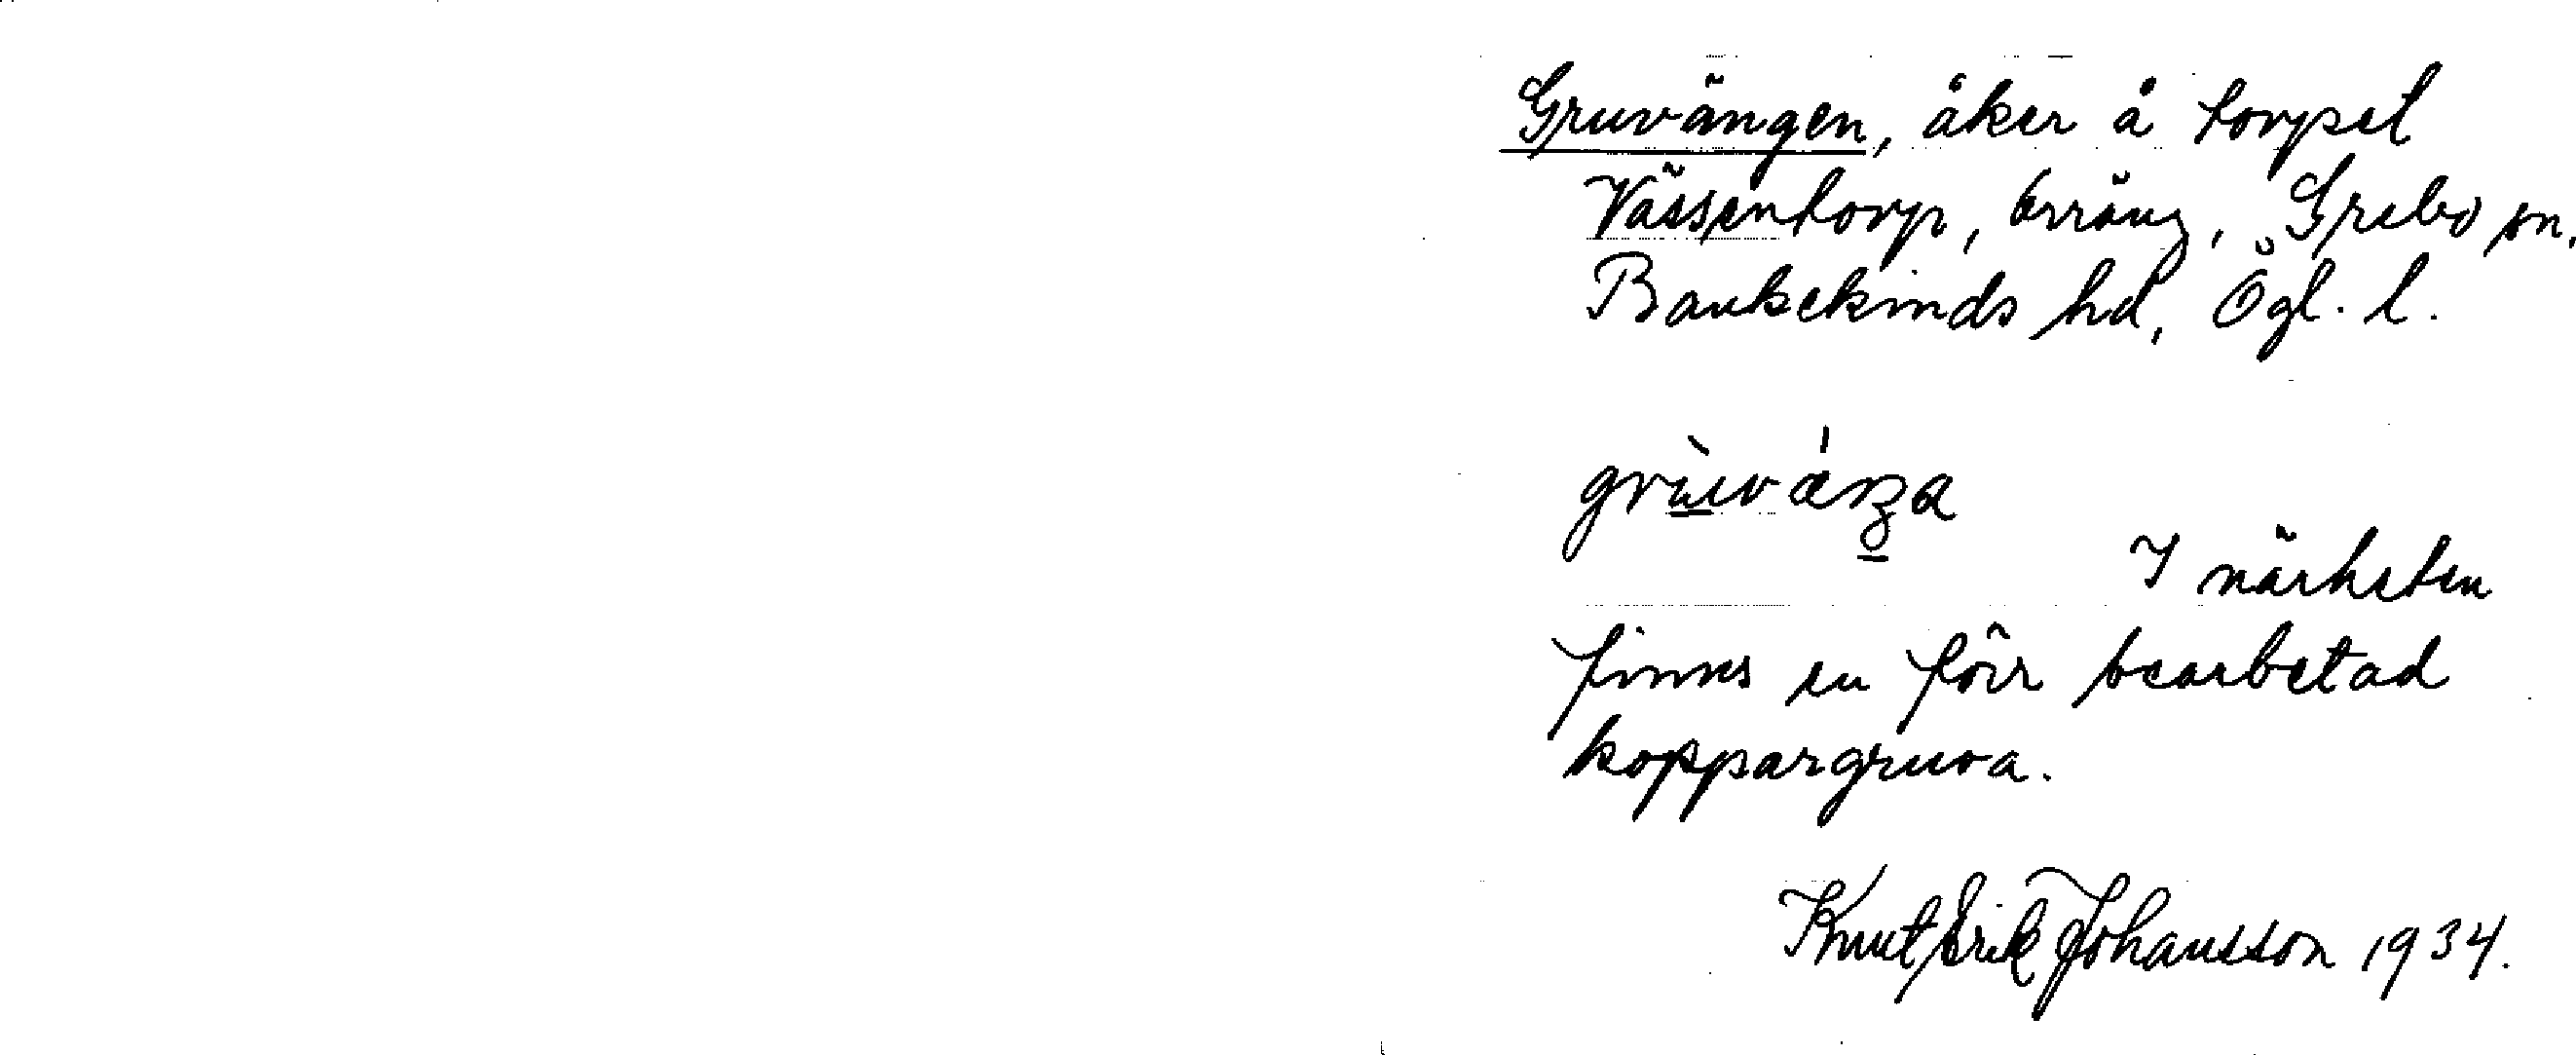 Gruvängen, åker å torpet
Vässentorp, Erräng, Grebo sn,
Bankekinds hd, Ögl. l.
I närheten
finns en förr bearbetad
koppargruva.
Knut Erik Johansson 1934.